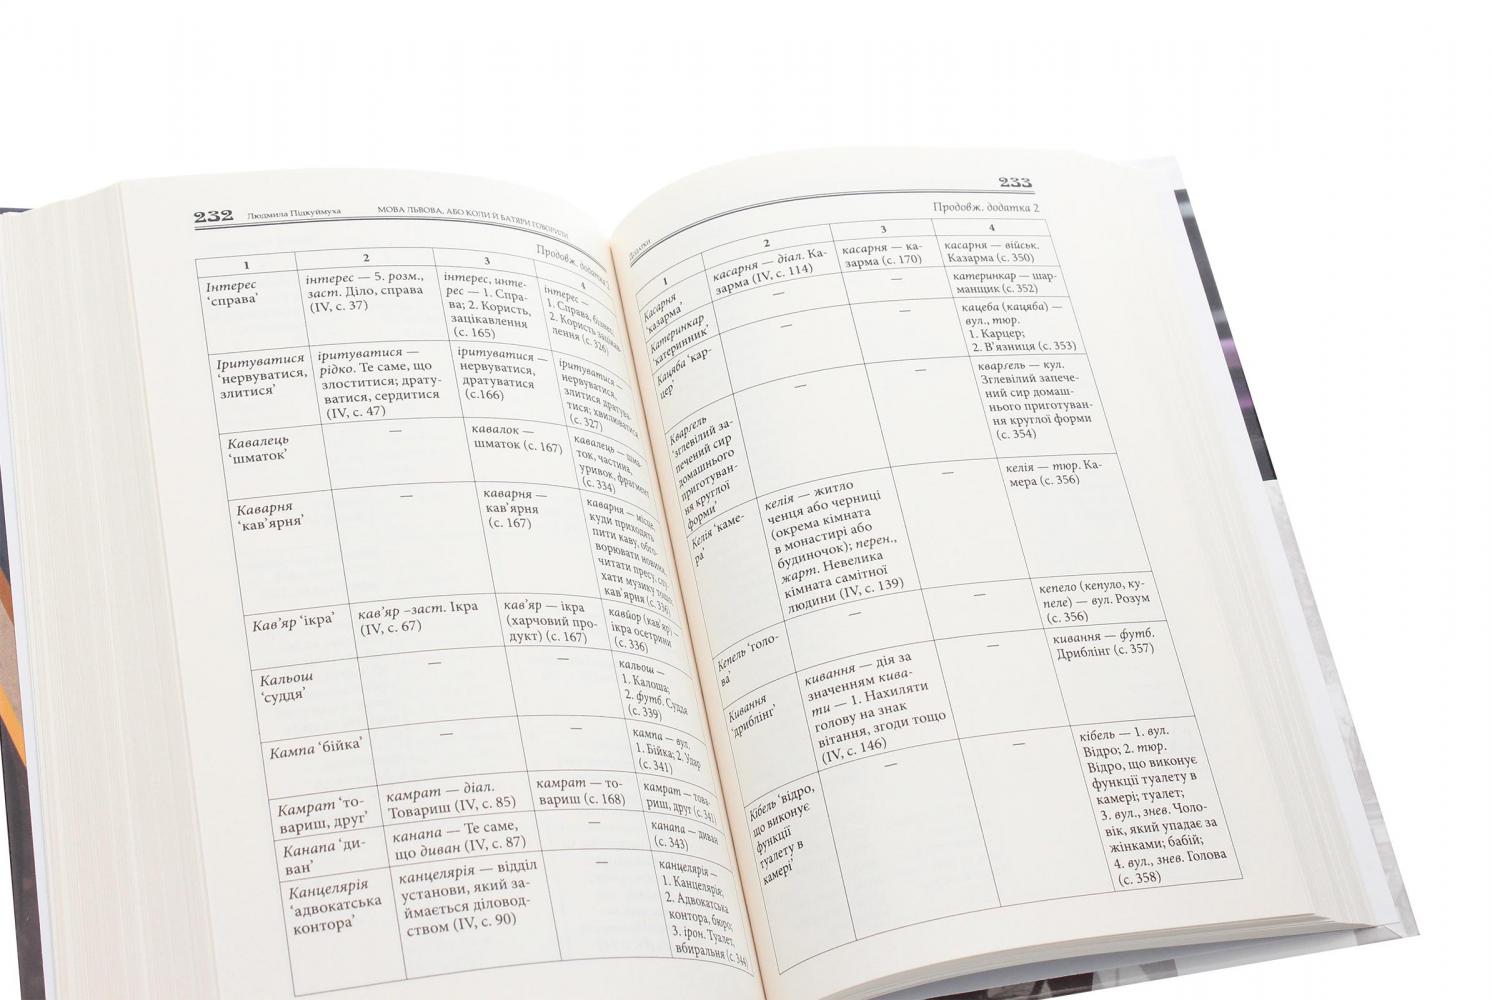 232 Людмила Підкуймуха МОВА ЛЬВОВА, АБО КОЛИ Й БАТЯРИ ГОВОРИЛИ
Продовж. додатка
1 2 3 4
Інтерес
‘справа’
інтерес — 5. розм.,
заст. Діло, справа
(IV, с. 37)
інтерес, инте-
рес — 1. Спра-
ва; 2. Користь,
зацікавлення
(с. 165)
інтерес —
1. Справа, бізнес;
2. Користь, зацікав-
лення (с. 326)
Іритуватися
‘нервуватися,
злитися’
іритуватися —
рідко. Те саме, що
злоститися; драту-
ватися, сердитися
(IV, с. 47)
іритуватися —
нервуватися,
дратуватися
(с.166)
іритуватися —
нервуватися,
злитися дратува-
тися; хвилюватися
(с. 327)
Кавалєць
‘шматок’
—
кавалок —
шматок (с. 167)
кавалєць — шма-
ток, частина,
уривок, фрагмент
(с. 334)
Каварня
‘кав’ярня’
—
каварня —
кав’ярня
(с. 167)
каварня — місце,
куди приходять
пити каву, обго-
ворювати новини,
читати пресу, слу-
хати музику тощо,
кав’ярня (с. 336)
Кав’яр ‘ікра’
кав’яр –заст. Ікра
(IV, с. 67)
кав’яр — ікра
(харчовий про-
дукт) (с. 167)
кавйор (кав’яр) —
ікра осетрини
(с. 336)
Кальош
‘суддя’
—
—
кальош —
1. Калоша;
2. футб. Суддя
(с. 339)
Кампа ‘бійка’
—
—
кампа — вул.
1. Бійка; 2. Удар
(с. 341)
Камрат ‘то-
вариш, друг’
камрат — діал.
Товариш (IV, с. 85)
камрат — то-
вариш (с. 168)
камрат — това-
риш, друг (с. 341)
Канапа ‘ди-
ван’
канапа — Те саме,
що диван (IV, с. 87)
—
канапа — диван
(с. 343)
Канцелярія
‘адвокатська
контора’
канцелярія — відділ
установи, який за-
ймається діловод-
ством (IV, с. 90)
—
канцелярія —
1. Канцелярія;
2. Адвокатська
контора, бюро;
3. ірон. Туалет,
вбиральня (с. 344)
ДОДАТКИ 233
Продовж. додатка 2
1 2 3 4
Касарня
‘казарма’
касарня — діал. Ка-
зарма (IV, с. 114)
касарня — ка-
зарма (с. 170)
касарня — військ.
Казарма (с. 350)
Катеринкар
‘катеринник’
—
—
катеринкар — шар-
манщик (с. 352)
Кацяба ‘кар-
цер’
—
—
кацеба (кацяба) —
вул., тюр.
1. Карцер;
2. В’язниця (с. 353)
Кварґель
‘зглевілий за-
печений сир
домашнього
приготуван-
ня круглої
форми’
—
—
кварґель — кул.
Зглевілий запече-
ний сир домаш-
нього приготуван-
ня круглої форми
(с. 354)
Келія ‘каме-
ра’
келія — житло
ченця або черниці
(окрема кімната
в монастирі або
будиночок); перен.,
жарт. Невелика
кімната самітної
людини (IV, с. 139)
—
келія — тюр. Ка-
мера (с. 356)
Кепель ‘голо-
ва’
—
—
кепело (кепуло, ку-
пеле) — вул. Розум
(с. 356)
Кивання
‘дриблінг’
кивання — дія за
значенням кива-
ти — 1. Нахиляти
голову на знак
вітання, згоди тощо
(IV, с. 146)
—
кивання — футб.
Дриблінг (с. 357)
Кібель ‘відро,
що виконує
функції
туалету в
камері’
—
—
кібель — 1. вул.
Відро; 2. тюр.
Відро, що виконує
функції туалету в
камері; туалет;
3. вул., знев. Чоло-
вік, який упадає за
жінками; бабій;
4. вул., знев. Голова
(с. 358)